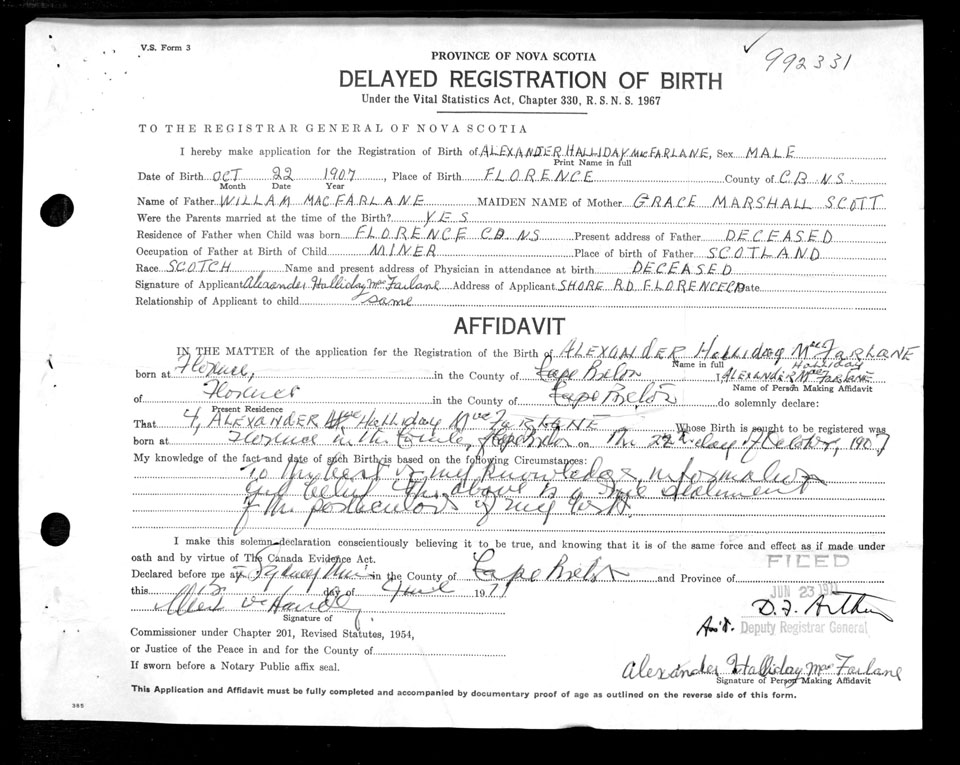 V.S. Form 3
992331
PROVINCE OF NOVA SCOTIA
DELAYED REGISTRATION OF BIRTH
Under the Vital Statistics Act, Chapter 330, R.S.N.S. 1967
TO THE REGISTRAR GENERAL OF NOVA SCOTIA
I hereby make application for the Registration of Birth of ALEXANDER HALLIDAY MACFARLANE, Sex MALE
Print Name in full
Date of Birth OCT 22 1907, Place of Birth FLORENCE County of C.B. N.S.
Month Date Year
Name of Father WILLAM MACFARLANE MAIDEN NAME of Mother GRACE MARSHALL SCOTT
Were the Parents married at the time of the Birth? YES
Residence of Father when Child was born FLORENCE C.B. N.S Present address of Father DECEASED
Occupation of Father at Birth of Child MINER Place of birth of Father SCOTLAND
Race SCOTCH Name and present address of Physician in attendance at birth DECEASED
Signature of Applicant Alexander Halliday MacFarlane Address of Applicant SHORE RD FLORENCE CB Date
Relationship of Applicant to child same
AFFIDAVIT
IN THE MATTER of the application for the Registration of the Birth of ALEXANDER Halliday MacFARLANE
Name in full
born at Florence, in the County of Cape Breton I ALEXANDER Halliday MacFARLANE
Name of Person Making Affidavit
of Florence in the County of Cape Breton do solemnly declare:
Present Residence
That I, ALEXANDER Halliday MacFARLANE Whose Birth is sought to be registered was
born at Florence in the County of Cape Breton on the 22nd day of October, 1907
My knowledge of the fact and date of such Birth is based on the following Circumstances:
To the best of my knowledge, information
and belief the above is a true statement
of the particulars of my birth.
I make this solemn declaration conscientiously believing it to be true, and knowing that it is of the same force and effect as if made under
oath and by virtue of The Canada Evidence Act.
FILED
Declared before me at Sydney Mines in the County of Cape Breton and Province of
this day of June 1971
JUN 23 1971
Signature of
D. F. Arthur
Ass't. Deputy Registrar General
Commissioner under Chapter 201, Revised Statutes, 1954,
or Justice of the Peace in and for the County of
If sworn before a Notary Public affix seal.
Alexander Halliday MacFarlane
Signature of Person Making Affidavit
This Application and Affidavit must be fully completed and accompanied by documentary proof of age as outlined on the reverse side of this form.
365